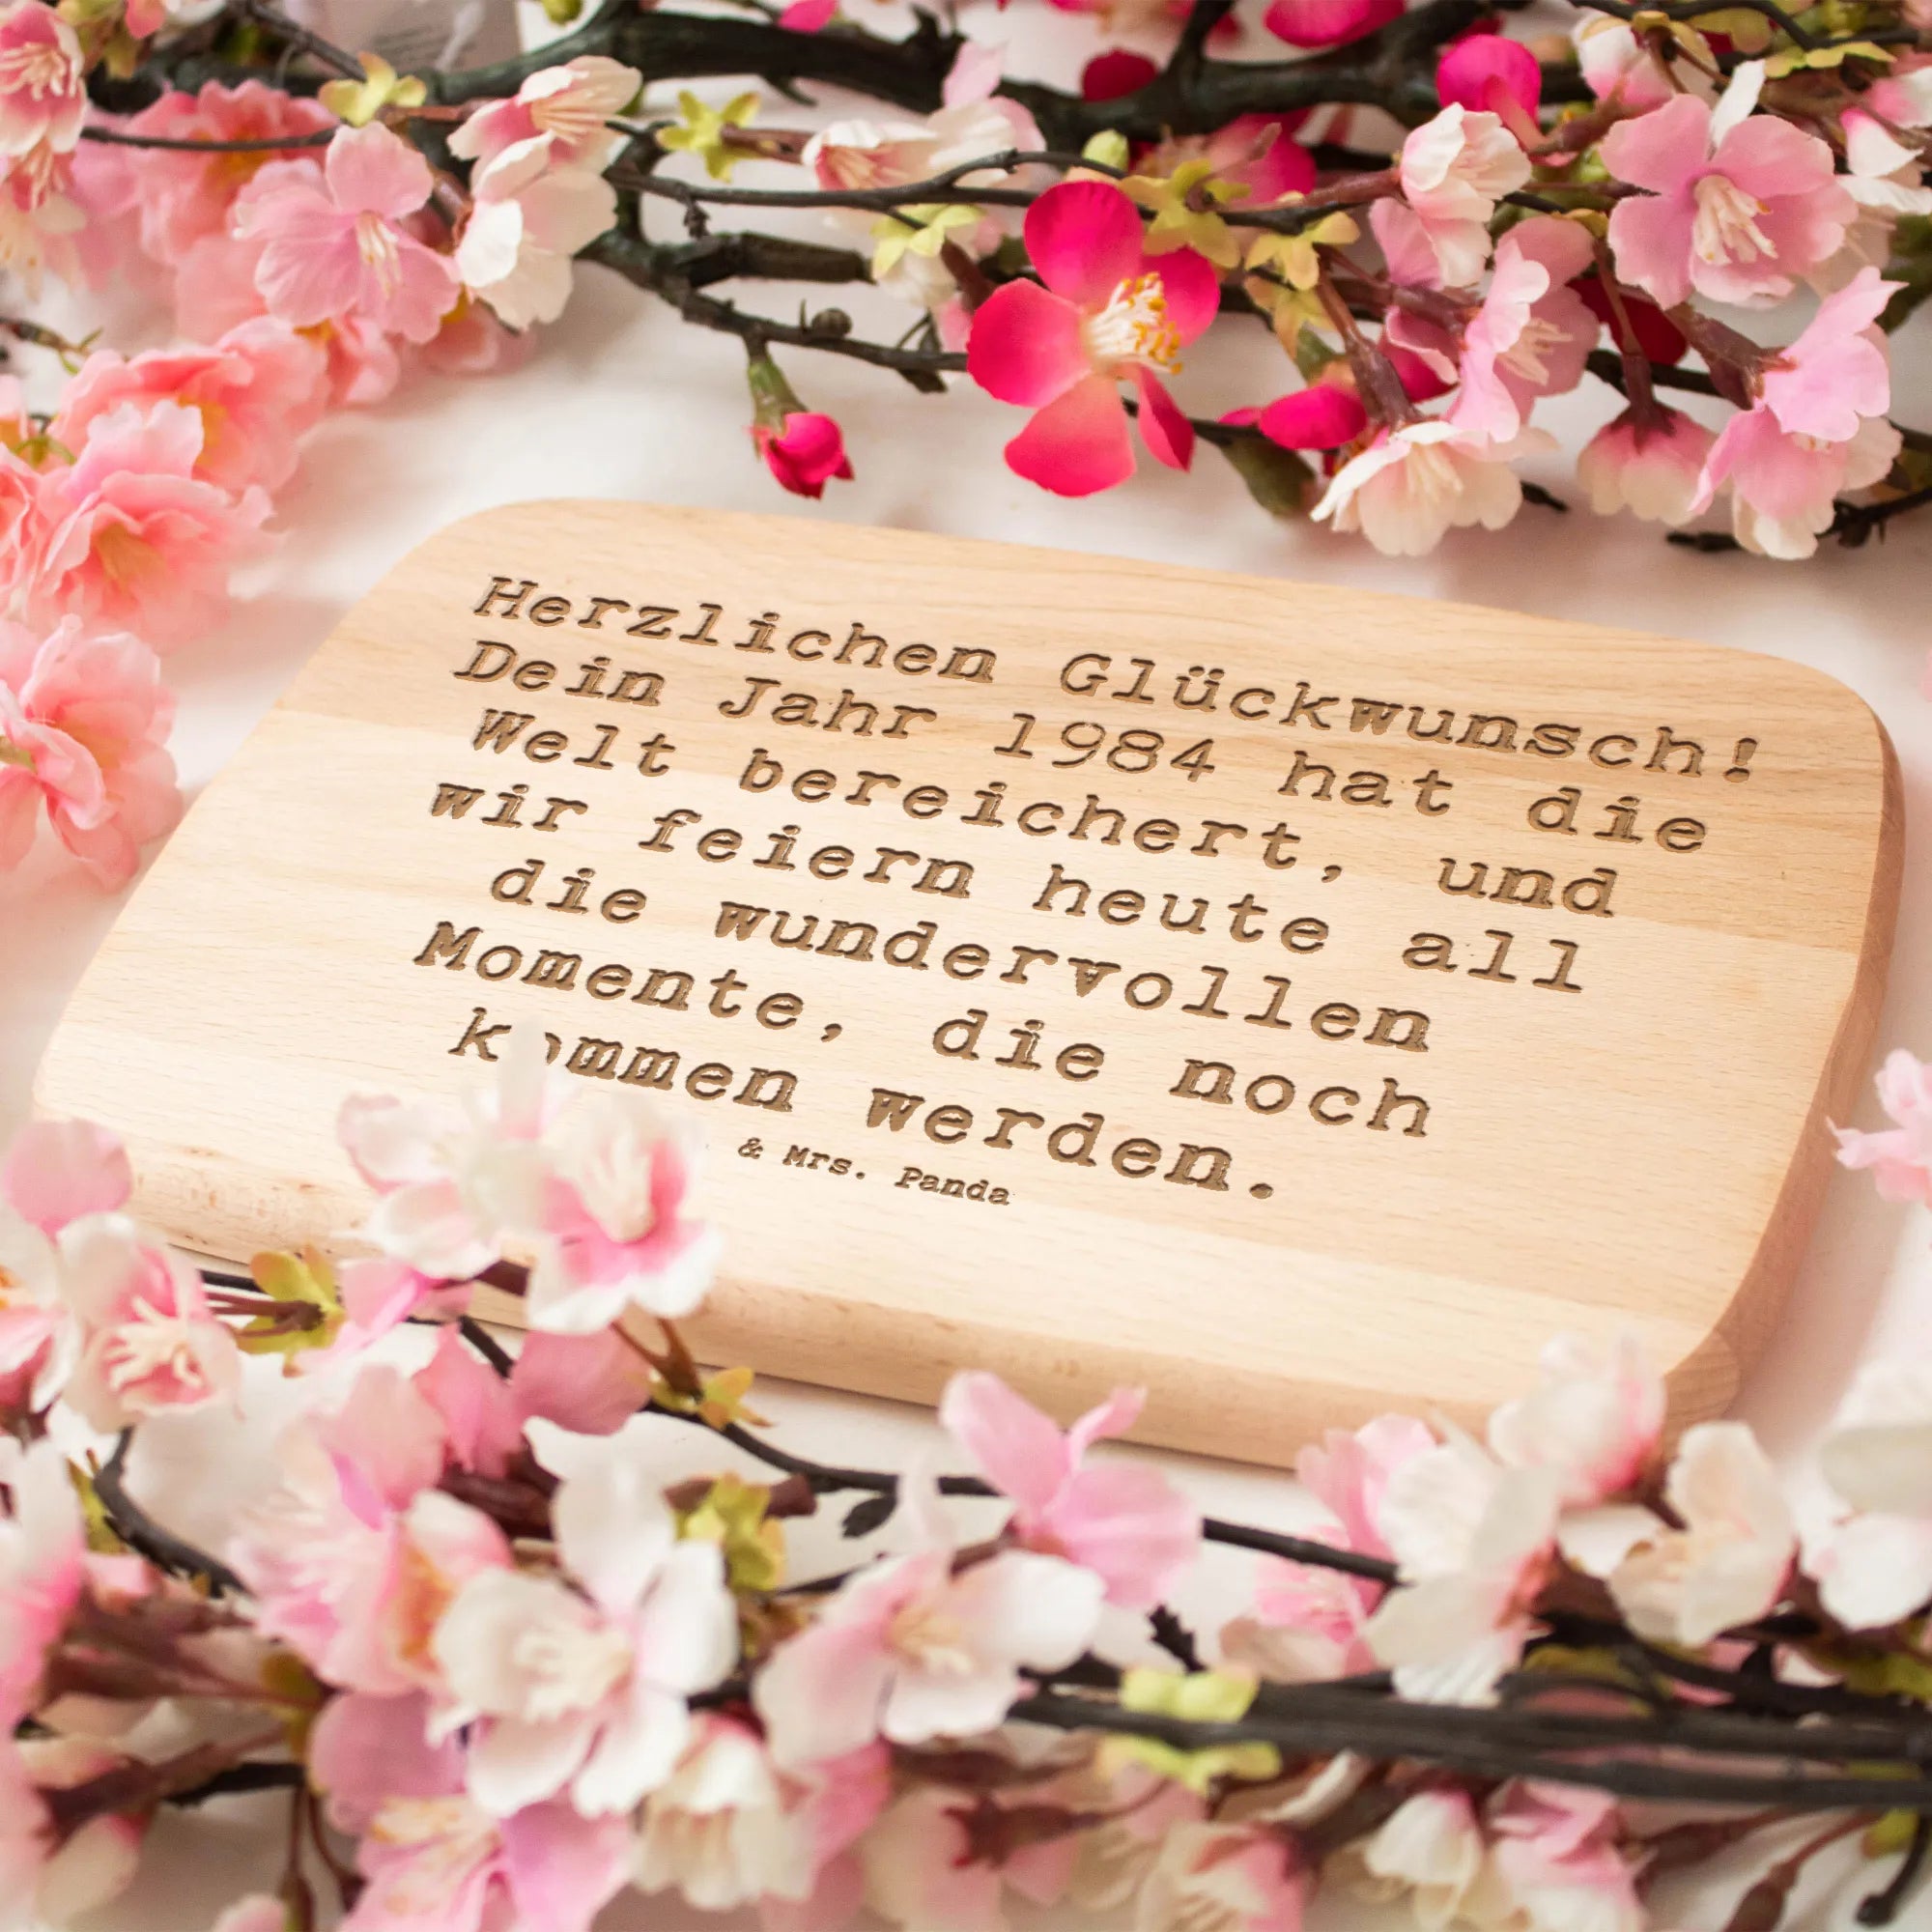 Herzlichen Glückwunsch!
Dein Jahr 1984 hat die
Welt bereichert, und
wir feiern heute all
die wundervollen
Momente, die noch
kommen werden.
& Mrs. Panda